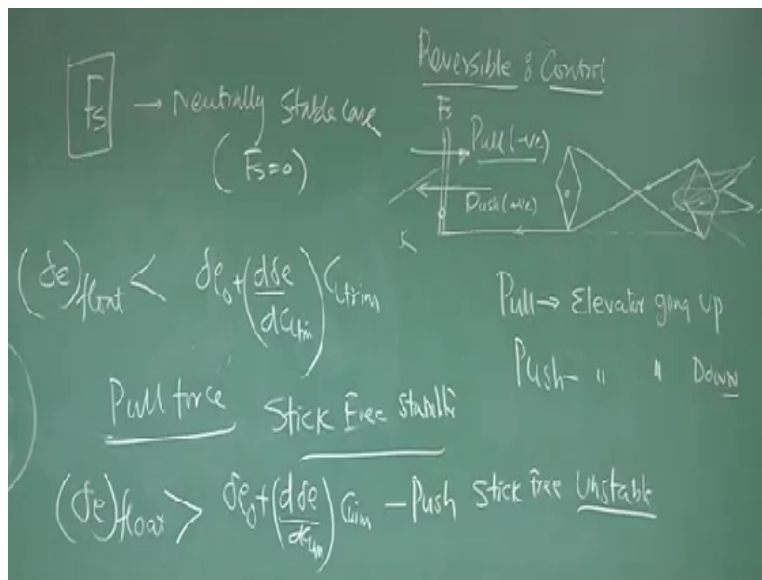 Fs → Neutrally Stable Case
(Fs=0)
Reversible : Control
Fs
Pull (-ve)
Push (+ve)
(δe)float < δe0+(dδe/dCLtrim) CLtrim
Pull → Elevator going up
Push - " " Down
Pull force Stick Free Stability
(δe)float > δe0+(dδe/dCLtrim) CLtrim - Push Stick free Unstable